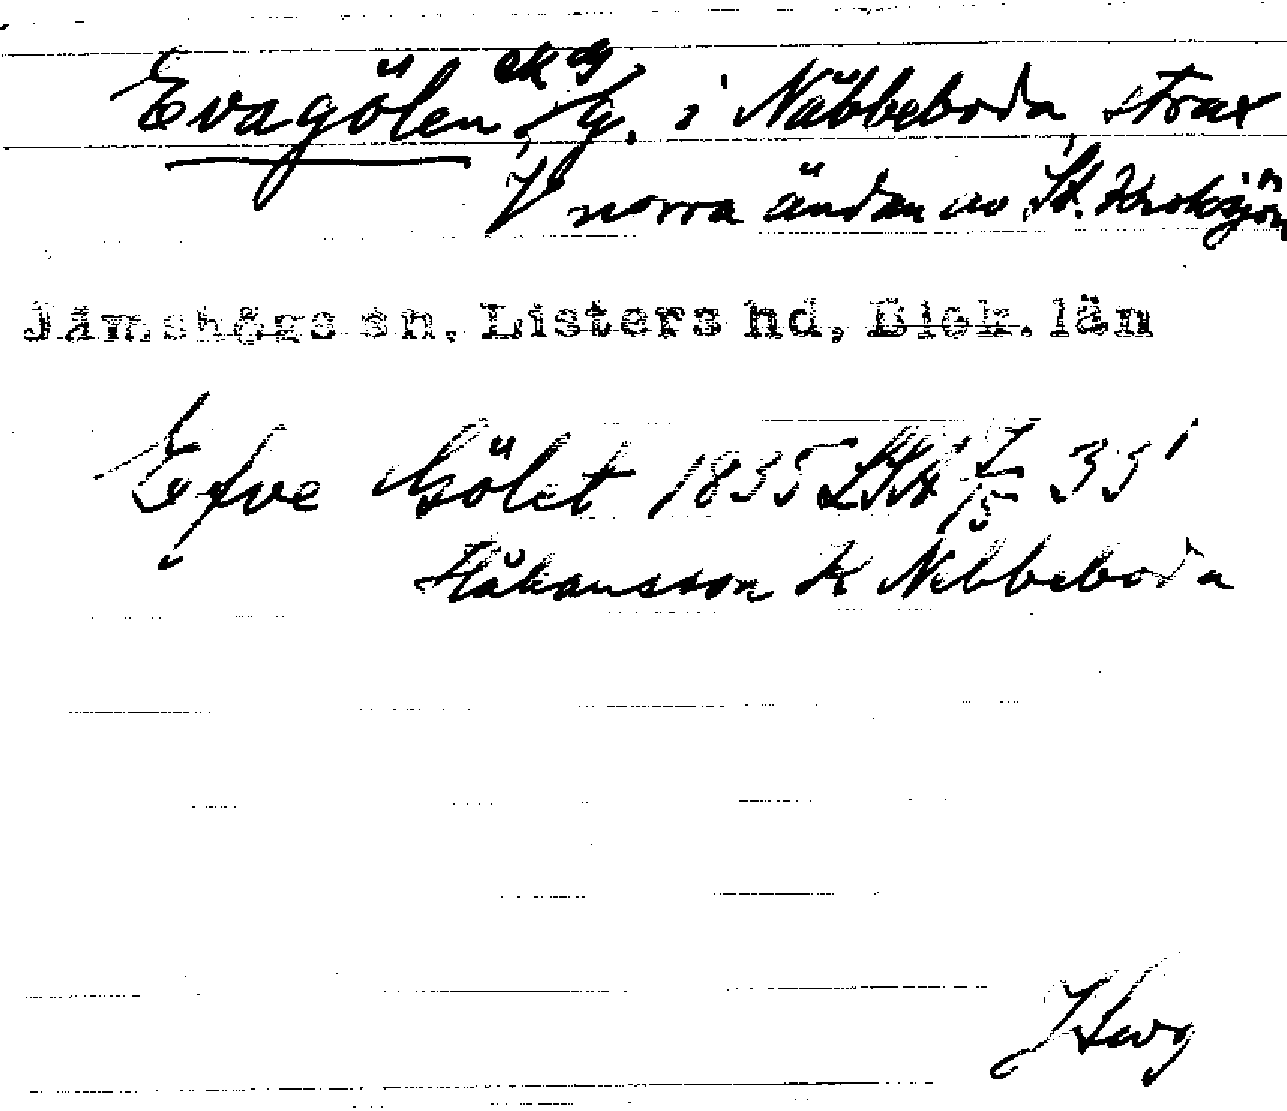 Evagölen, g. i Näbbeboda, strax
V norra ändan av St. Kroksjön
Jämshögs sn, Listers hd, Blek. län
Efve Gölet 1835 35'
Håkansson K Nebbeboda